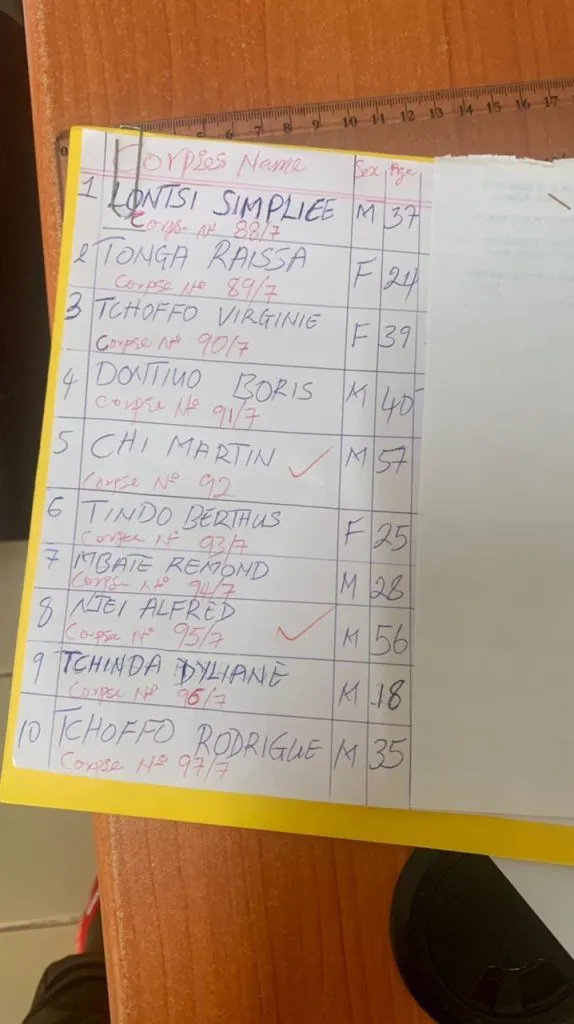 Corpses Name Sex Age
1 LONTSI SIMPLICE M 37
Corpse N° 88/7
2 TONGA RAISSA F 24
Corpse N° 89/7
3 TCHOFFO VIRGINIE F 39
Corpse N° 90/7
4 BORIS M 40
Corpse N° 91/7
5 CHI MARTIN M 57
Corpse N° 92
6 TINDO BERTHUS F 25
Corpse N° 93/7
7 MBATE REMOND M 28
Corpse N° 94/7
8 ALFRED M 56
Corpse N° 95/7
9 TCHINDA DYLIANE M 18
Corpse N° 96/7
10 TCHOFFO RODRIGUE M 35
Corpse N° 97/7
5 6 7 8 9 10 11 12 13 14 15 16 17